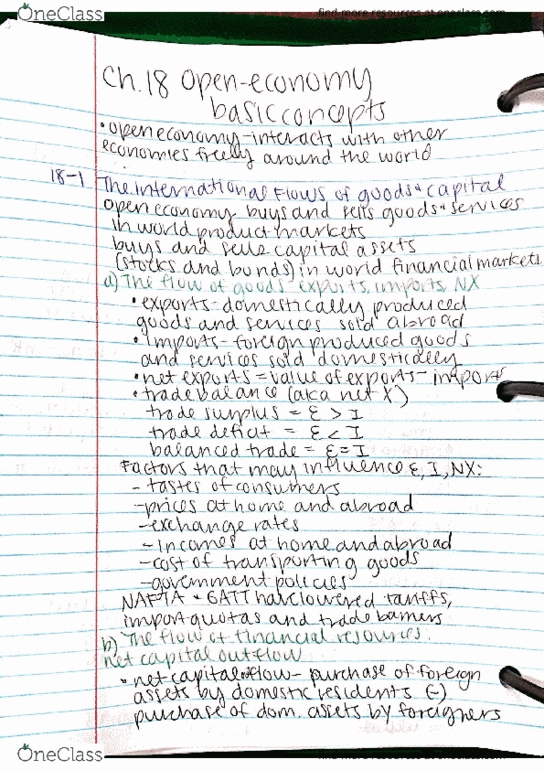 OneClass
find more resources at oneclass.com
Ch. 18 open-economy
basic concepts
• open economy - interacts with other
economies freely around the world
18-1 The international flows of goods + capital
open economy buys and sells goods + services
in world product markets
buys and sells capital assets
(stocks and bonds) in world financial markets
a) The flow of goods - exports, imports, NX
• exports - domestically produced
goods and services sold abroad
• imports - foreign produced goods
and services sold domestically
• net exports = value of exports - imports
• trade balance (aka net X)
trade surplus = E > I
trade deficit = E < I
balanced trade = E = I
Factors that may influence E, I, NX:
- tastes of consumers
- prices at home and abroad
- exchange rates
- incomes at home and abroad
- cost of transporting goods
- government policies
NAFTA + GATT have lowered tariffs,
import quotas and trade barriers
b) The flow of financial resources.
net capital outflow
• net capital outflow - purchase of foreign
assets by domestic residents (-)
purchase of dom. assets by foreigners
OneClass
find more resources at oneclass.com